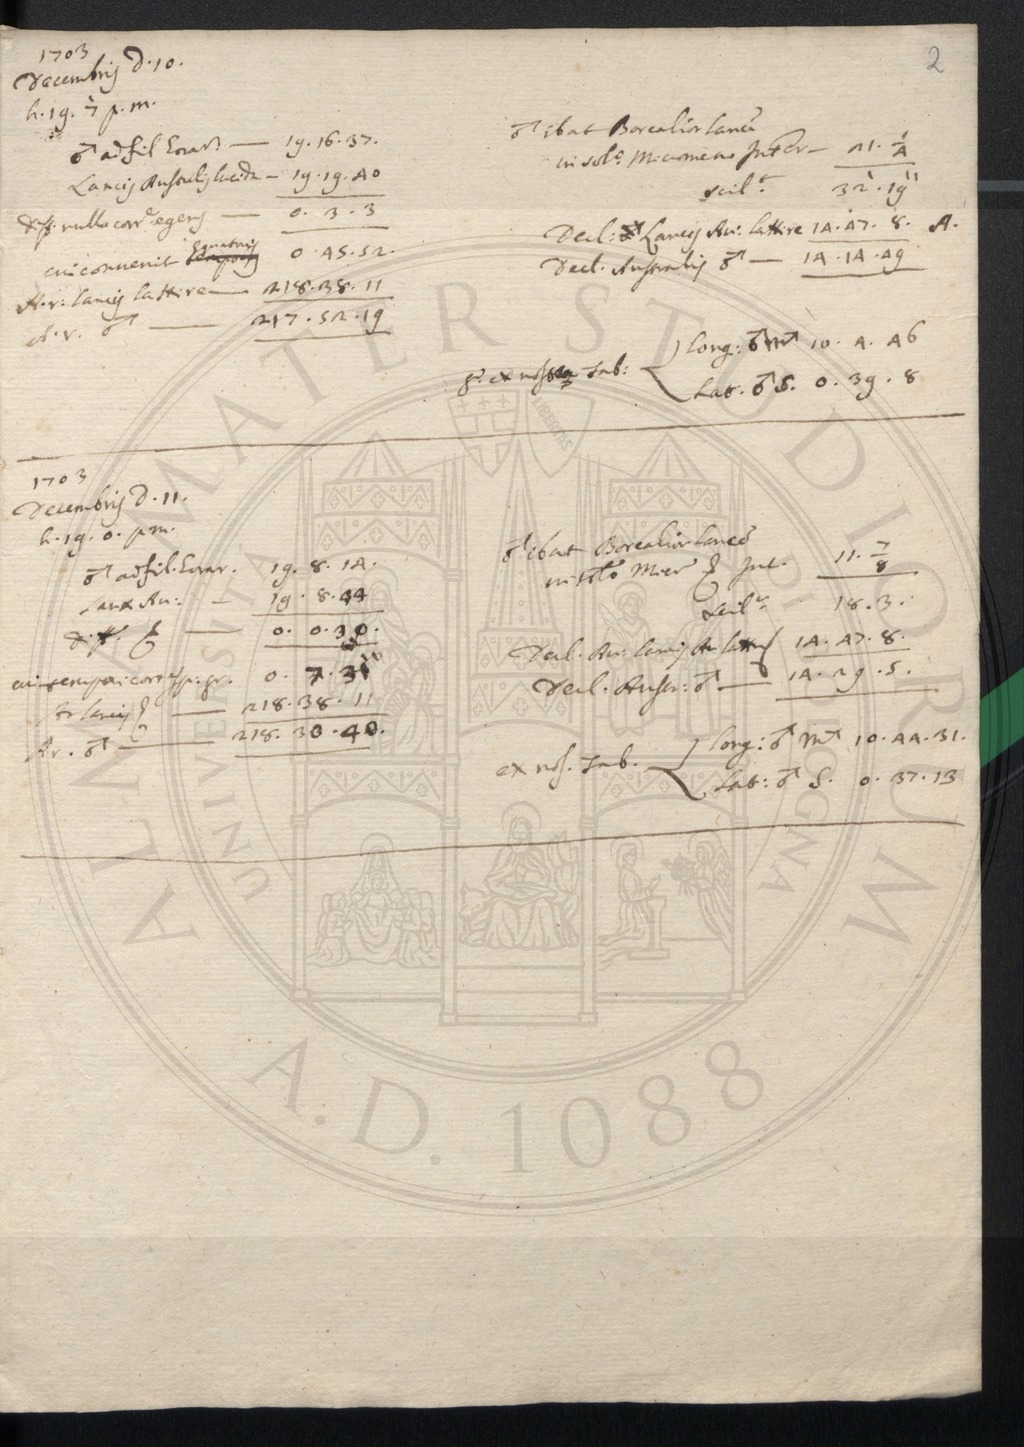 2
1703
Decembris D. 10.
h. 19. 7 p. m.
♂ ad fil. horar. — 19. 16. 37.
Lancis Australis lucida — 19. 19. 40
diff. nulla corr. egens — 0. 3. 3
cui convenit Equatoris 0. 45. 52.
A. r. lancis la Hire — 218. 38. 11
A. r. ♂ — 217. 52. 19
♂ ibat Borealior lance
in Micrometro Inter — 21. 1/4
scil.t 32' . 19''
Decl: Lancis Au: la Hire 14. 47. 8. A.
Decl. Australis ♂ — 14. 14. 49
ex tab: Long: ♂ ♏ 10. 4. 46
Lat. ♂ S. 0. 39. 8
1703
Decembris D. 11.
h. 19. 0. p. m.
♂ ad fil. horar. 19. 8. 14.
Lanx Au: — 19. 8. 44
diff. — 0. 0. 30.
0. 7. 31
Ar lancis — 218. 38. 11
Ar. ♂ — 218. 30. 40.
♂ ibat Borealior lance
in Micr Int. 11. 7/8
scil.t 18. 3.
Decl. Au. lancis 14. 47. 8.
Decl. Austr: ♂ — 14. 29. 5.
ex tab. Long: ♂ ♏ 10. 44. 31.
Lat: ♂ S. 0. 37. 13
ALMA MATER STUDIORUM
UNIVERSITÀ DI BOLOGNA
LIBERTAS
A.D. 1088